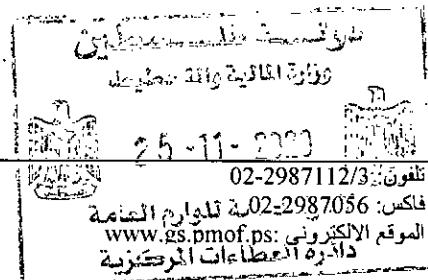 دولة فلسطين
وزارة المالية والتخطيط
25-11-
تلفون: 02-2987112/3
فاكس: 02-2987056 للوازم العامة
الموقع الالكتروني: www.gs.pmof.ps
دائرة العطاءات المركزية